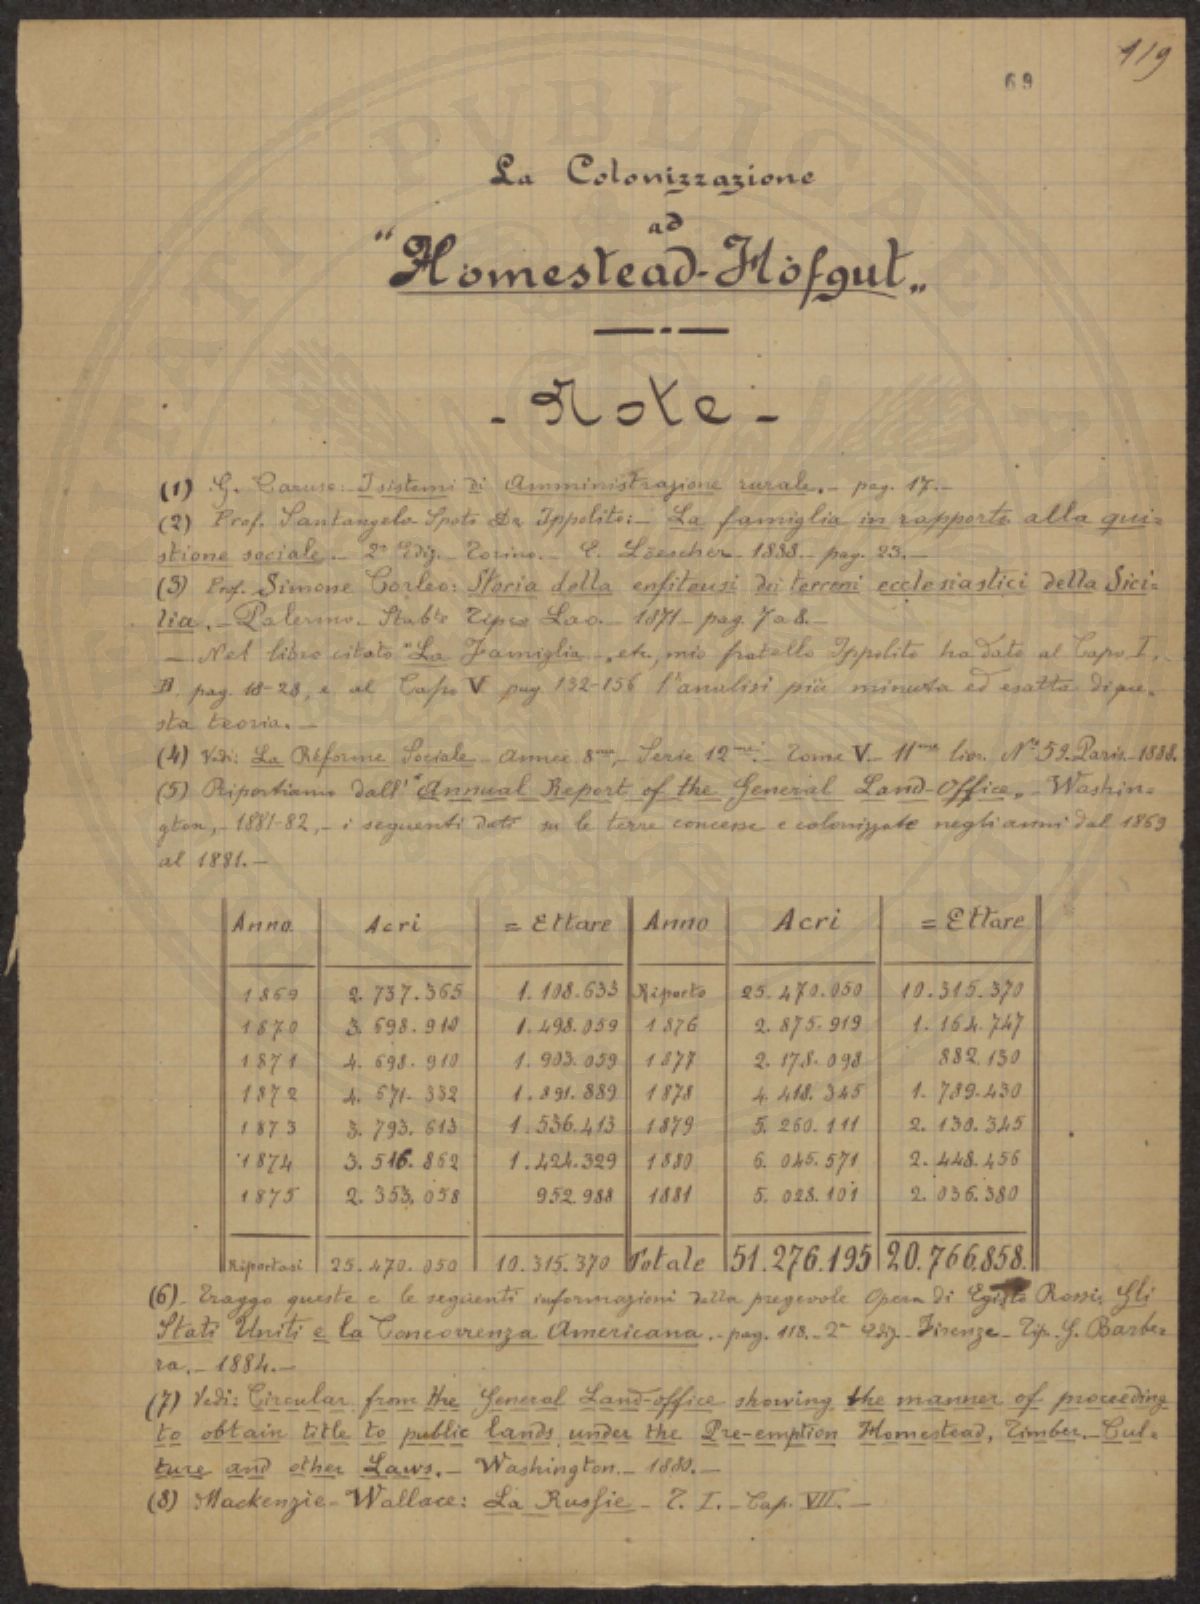 119
69
La Colonizzazione
ad
"Homestead-Hofgut„
- Note -
(1) G. Caruso: I sistemi di Amministrazione rurale. - pag. 17. -
(2) Prof. Santangelo Spoto Dr Ippolito: - La famiglia in rapporto alla qui=
stione sociale. - 2ª Ediz. - Torino. - E. Löescher - 1888. - pag. 23. -
(3) Prof. Simone Corleo: Storia della enfiteusi dei terreni ecclesiastici della Sici=
lia. - Palermo - Stabte Tipco Lao. - 1871 - pag. 7 a 8. -
- Nel libro citato "La Famiglia„ etc, mio fratello Ippolito ha dato al Capo I,
B. pag. 18-28, e al Capo V pag 132-156 l'analisi più minuta ed esatta di que=
sta teoria. -
(4) Vedi: La Réforme Sociale - Année 8me, - Serie 12me - Tome V. - 11me livr. No 59. Paris - 1888.
(5) Riportiamo dall' "Annual Report of the General Land-Office„ - Washin=
gton, - 1881-82, - i seguenti dati su le terre concesse e colonizzate negli anni dal 1869
al 1881. -
Anno Acri = Ettare Anno Acri = Ettare
1869 2.737.365 1.108.633 Riporto 25.470.050 10.315.370
1870 3.698.910 1.498.059 1876 2.875.919 1.164.747
1871 4.698.910 1.903.059 1877 2.178.098 882.130
1872 4.671.332 1.891.889 1878 4.418.345 1.789.430
1873 3.793.613 1.536.413 1879 5.260.111 2.130.345
1874 3.516.862 1.424.329 1880 6.045.571 2.448.456
1875 2.353.058 952.988 1881 5.028.101 2.036.380
Riportasi 25.470.050 10.315.370 Totale 51.276.195 20.766.858.
(6) - Traggo queste e le seguenti informazioni dalla pregevole Opera di Egisto Rossi: Gli
Stati Uniti e la Concorrenza Americana. - pag. 118. - 2ª Ediz - Firenze - Tip. G. Barbe=
ra. - 1884. -
(7) Vedi: Circular from the General Land-office showing the manner of proceeding
to obtain title to public lands under the Pre-emption Homestead, Timber-Cul=
ture and other Laws. - Washington. - 1880. -
(8) Mackenzie-Wallace: La Russie - T. I. - Cap. VII. -